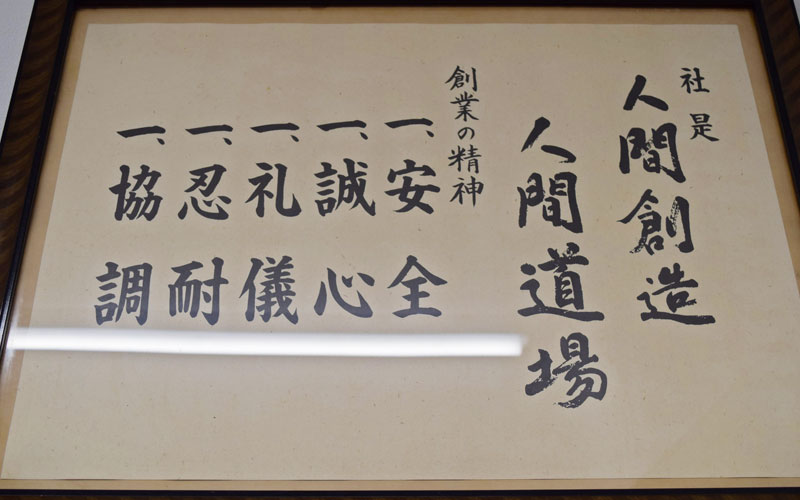 社是
人間創造
人間道場
創業の精神
一、安全
一、誠心
一、礼儀
一、忍耐
一、協調